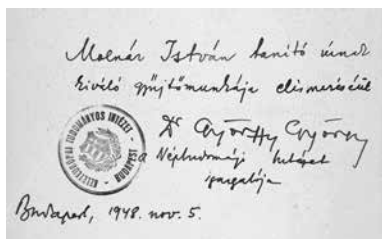 Molnár István tanító úrnak
kiváló gyűjtőmunkája elismeréséül
Dr Györffy György
a Néptudományi Intézet
igazgatója
KELETEURÓPAI TUDOMÁNYOS INTÉZET
BUDAPEST
Budapest, 1948. nov. 5.